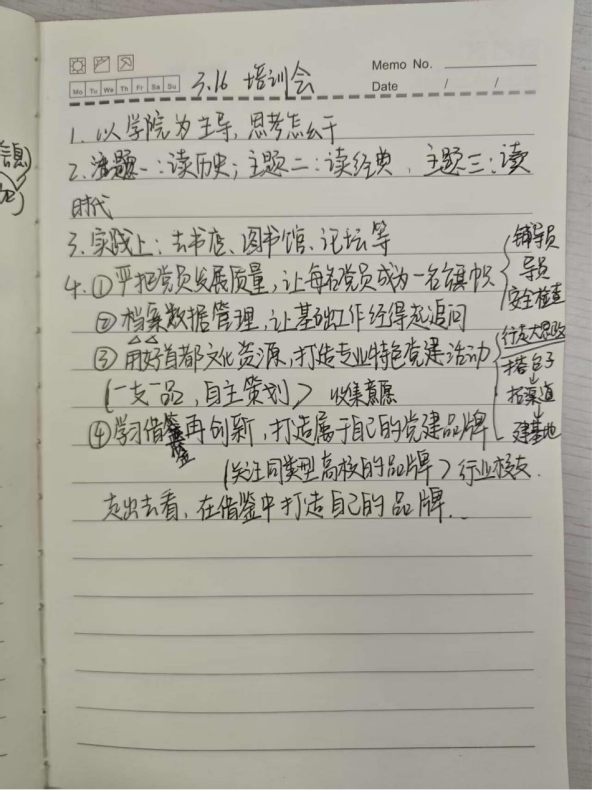 Memo No.
Mo Tu We Th Fr Sa Su
Date / /
3.16 培训会
1. 以学院为主导,思考怎么干
2. 主题一:读历史;主题二:读经典、主题三:读
时代
3. 实践上:去书店、图书馆、论坛等
4. ①严把党员发展质量,让每名党员成为一名旗帜
辅导员
导员
安全检查
②档案数据管理,让基础工作经得起追问
③用好首都文化资源,打造专业特色党建活动
(一支一品,自主策划) 收集意愿
行走大思政
搭台子
拓渠道
建基地
④学习借鉴再创新,打造属于自己的党建品牌
(关注同类型高校的品牌) 行业校友.
走出去看,在借鉴中打造自己的品牌...
信息